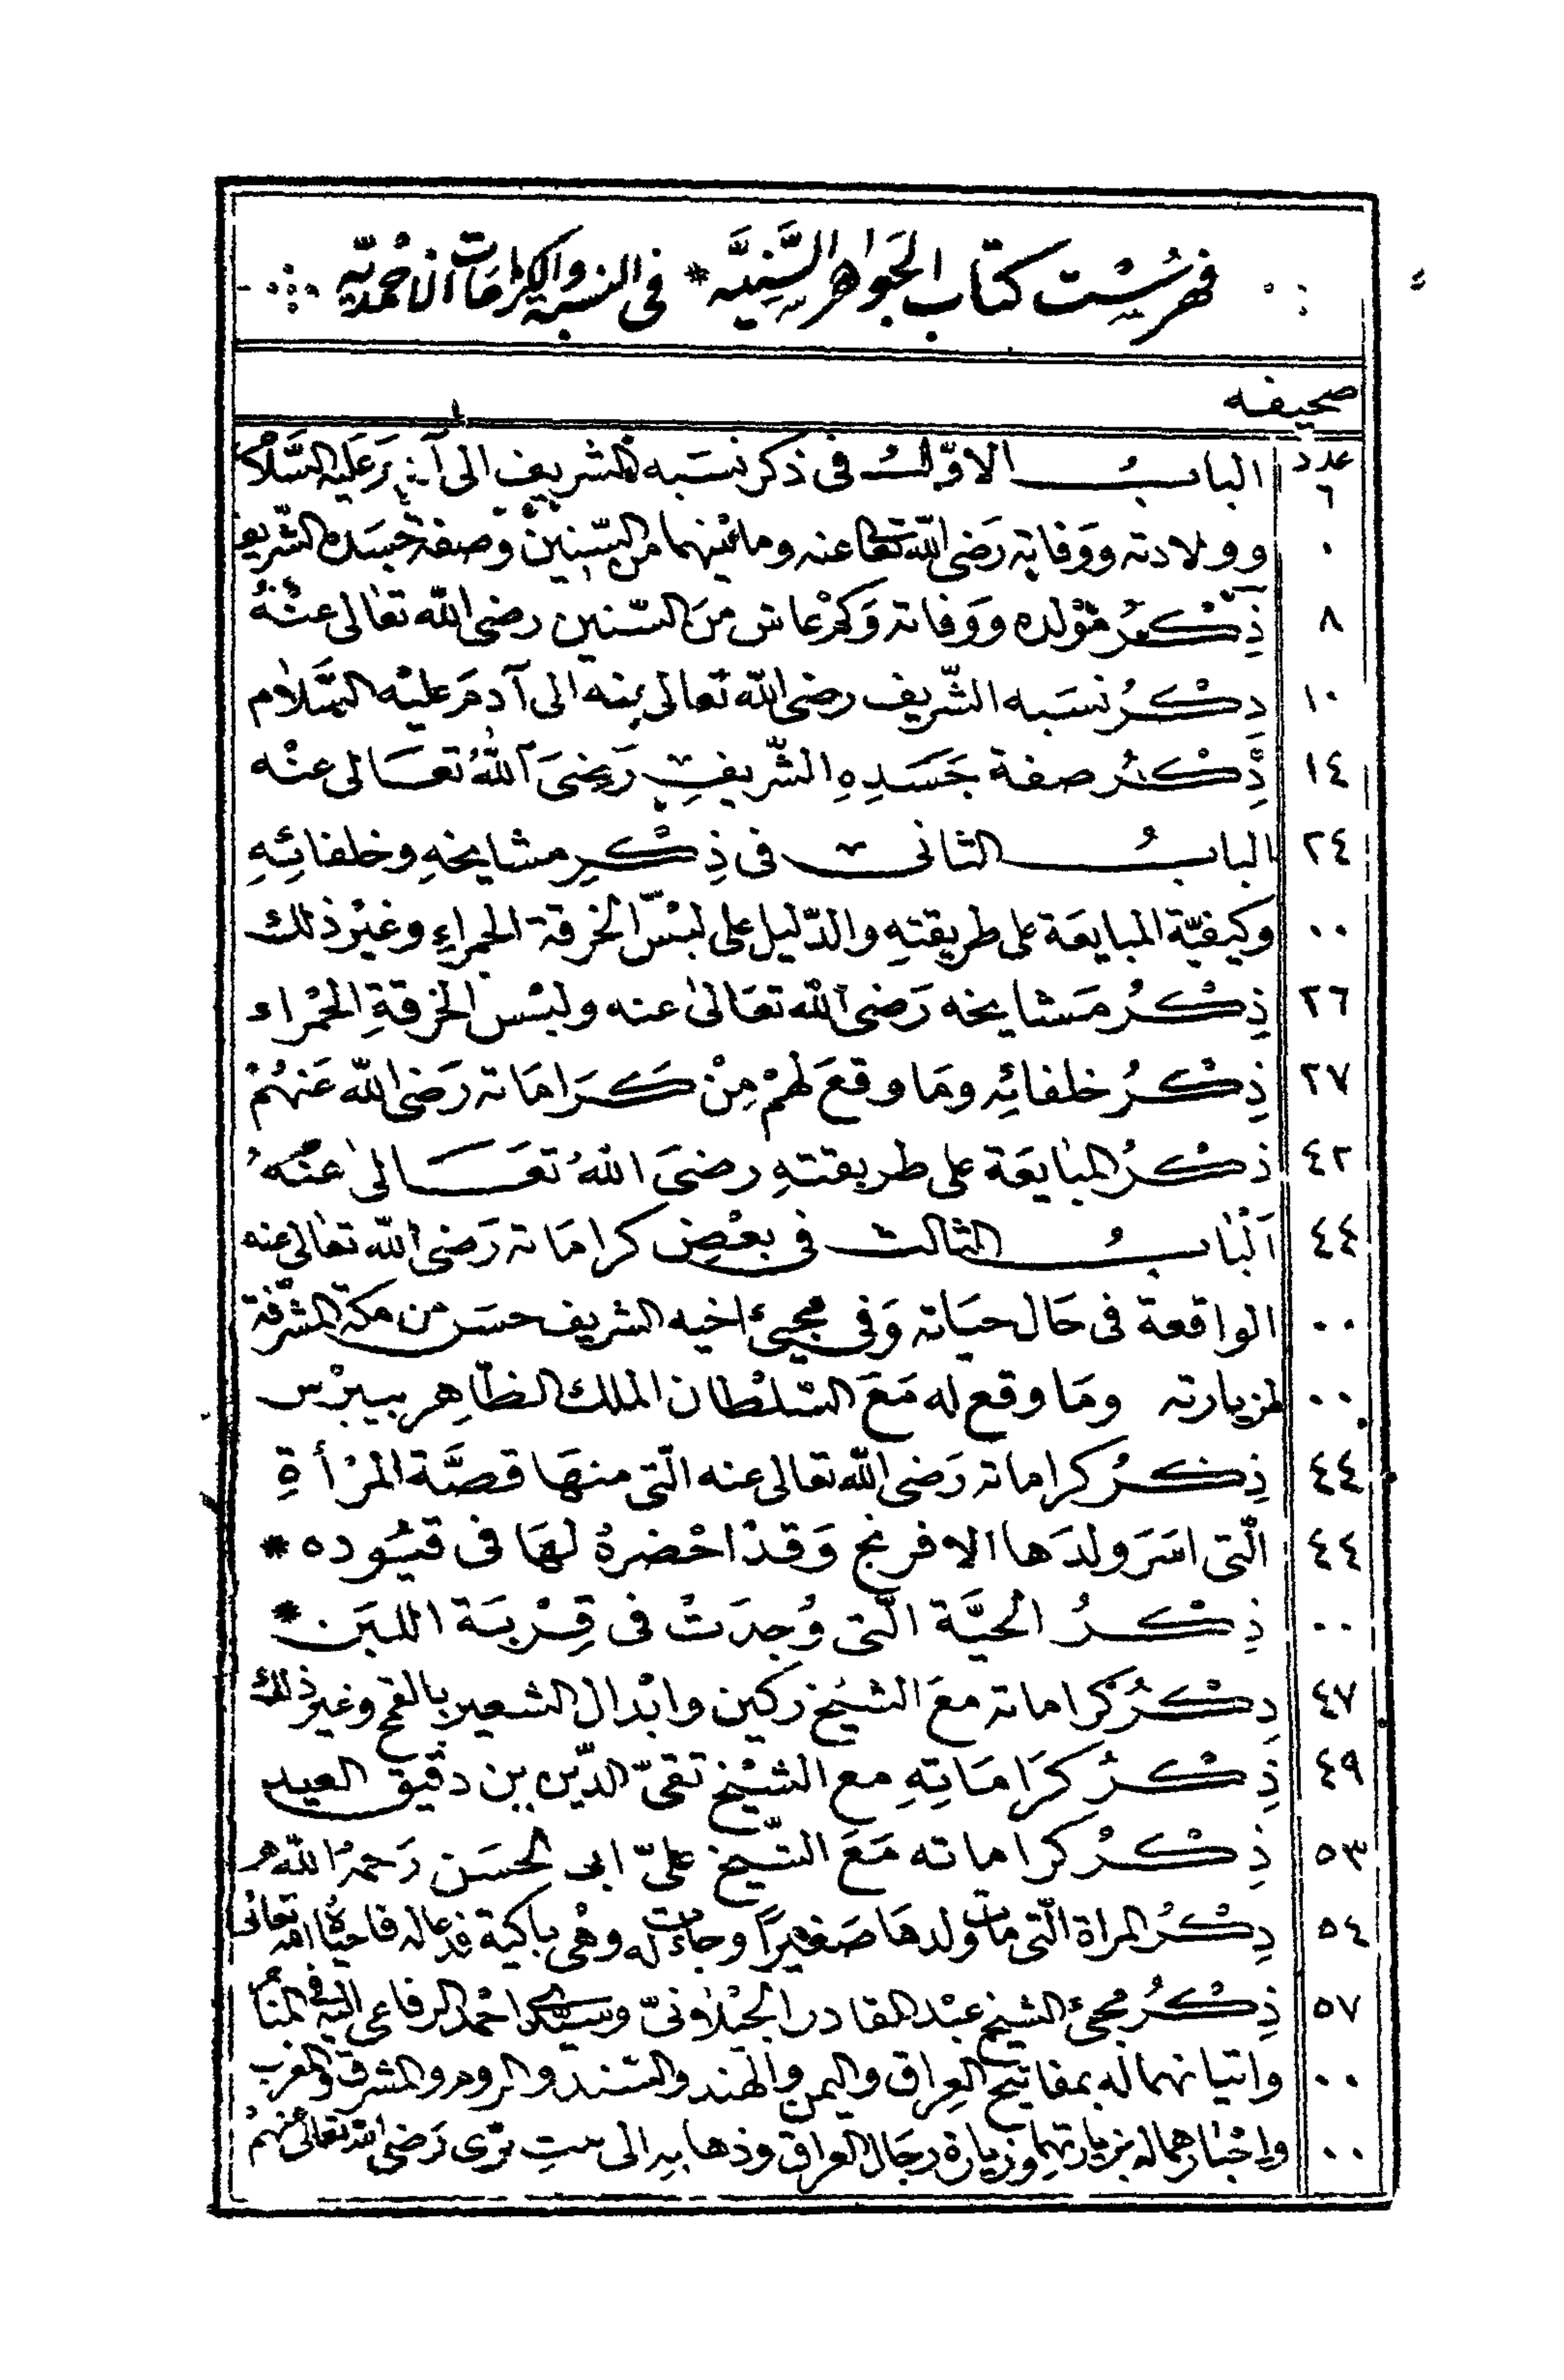 فهرست كتاب الجواهر السنيه * فى النسبة والكرامات الاحمديه
صحيفه
عدد
٦ الباب الاول فى ذكر نسبه الشريف الى آدم عليه السلام
٠ وولادته ووفاته رضى الله تعالى عنه وما بينهما من السنين وصفة جسده الشريف
٨ ذكر مولده ووفاته وكم عاش من السنين رضى الله تعالى عنه
١٠ ذكر نسبه الشريف رضى الله تعالى منه الى آدم عليه السلام
١٤ ذكر صفة جسده الشريف رضى الله تعالى عنه
٢٤ الباب الثانى فى ذكر مشايخه وخلفائه
٠٠ وكيفية المبايعة على طريقته والدليل على لبس الخرقة الحمراء وغير ذلك
٢٦ ذكر مشايخه رضى الله تعالى عنه ولبس الخرقة الحمراء
٢٧ ذكر خلفائه وما وقع لهم من كراماته رضى الله عنهم
٤٢ ذكر المبايعة على طريقته رضى الله تعالى عنه
٤٤ الباب الثالث فى بعض كراماته رضى الله تعالى عنه
٠٠ الواقعة فى حال حياته وفى مجيئ اخيه الشريف حسن من مكة المشرفة
٠٠ لزيارته وما وقع له مع السلطان الملك الظاهر بيبرس
٤٤ ذكر كراماته رضى الله تعالى عنه التى منها قصة المرأة
٤٤ التى اسر ولدها الافرنج وقد احضره لها فى قيوده *
٠٠ ذكر الحية التى وجدت فى قربة اللبن *
٤٧ ذكر كراماته مع الشيخ ركين وابدال الشعير بالقمح وغير ذلك
٤٩ ذكر كراماته مع الشيخ تقى الدين بن دقيق العيد
٥٣ ذكر كراماته مع الشيخ على ابى الحسن رحمه الله
٥٤ ذكر المراة التى مات ولدها صغيرا وجاءت له وهى باكية فدعا له فاحياه الله تعالى
٥٧ ذكر مجئ الشيخ عبد القادر الجيلانى وسيدى احمد الرفاعى اليه فى المنام
٠٠ واتيانهما له بمفاتيح العراق واليمن والهند والسند والروم والمشرق والمغرب
٠٠ واخبارهما له بزيارتهما وزيارة رجال العراق وذهابه الى بنت برى رضى الله تعالى عنهم